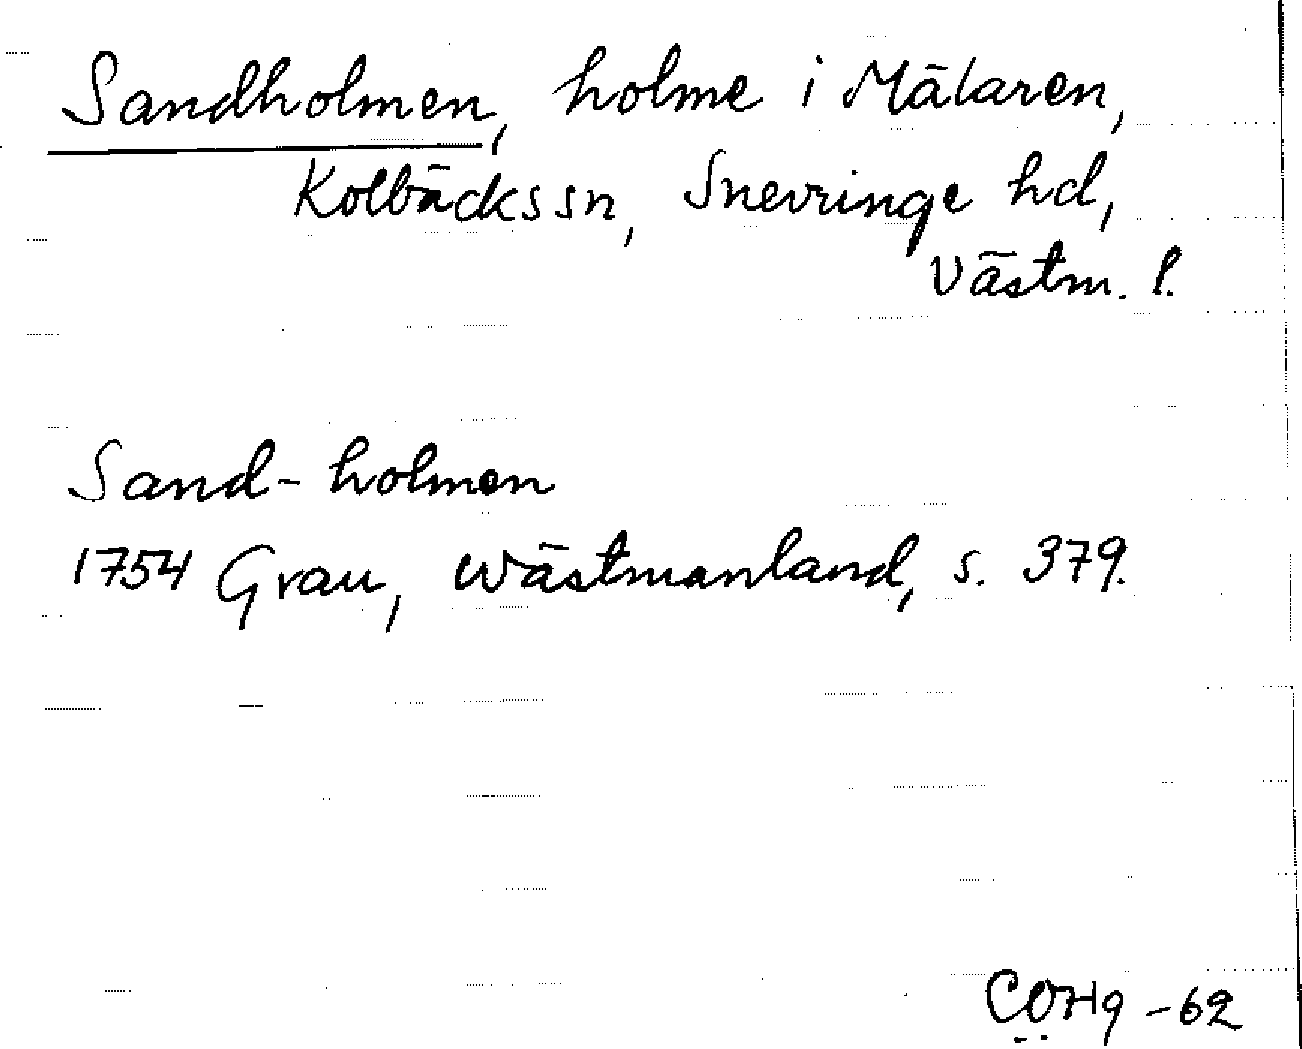 Sandholmen, holme i Mälaren,
Kolbäcks sn, Snevringe hd,
Västm. l.
Sand-holmen
1754 Grau, Wästmanland, s. 379.
COHg -62